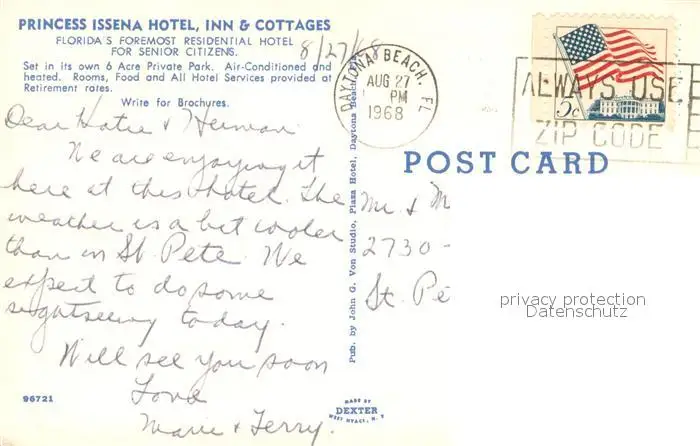 PRINCESS ISSENA HOTEL, INN & COTTAGES
FLORIDA'S FOREMOST RESIDENTIAL HOTEL
FOR SENIOR CITIZENS.
Set in its own 6 Acre Private Park. Air-Conditioned and
heated. Rooms, Food and All Hotel Services provided at
Retirement rates.
Write for Brochures.
8/27/68
Dear Katie & Herman
We are enjoying it
here at this hotel. The
weather is a bit cooler
than in St. Pete. We
expect to do some
sightseeing today.
Will see you soon
Love
Marie & Terry.
96721
Pub. by John G. Von Studio, Plaza Hotel, Daytona Beach,
DAYTONA BEACH, FL
AUG 27
PM
1968
ALWAYS USE
ZIP CODE
5c
POST CARD
Mr. & M
2730 -
St. Pe
privacy protection
Datenschutz
MADE BY
DEXTER
WEST NYACK, N. Y.